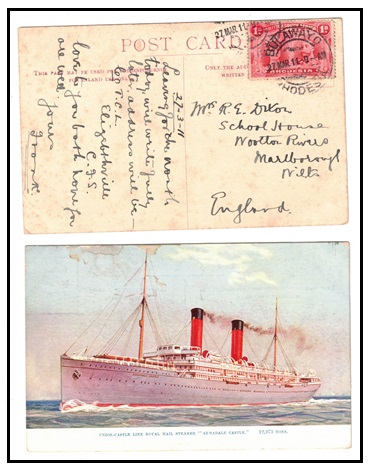 POST CARD
THIS PART MAY BE USED FOR
ONLY THE
WRITTEN
BULAWAYO
27 MAR 11
RHODESIA
1d
RHODESIA
1d
27-3-11
Leaving for the north
today, will write fully
later, address will be -
Elizabethville
C.F.S.
love to you both hope you
are well
Yours
Frank
Mrs R. E. Dixon
School House
Wootton Rivers
Marlborough
Wilts
England.
UNION-CASTLE LINE ROYAL MAIL STEAMER "ARMADALE CASTLE." 12,973 TONS.